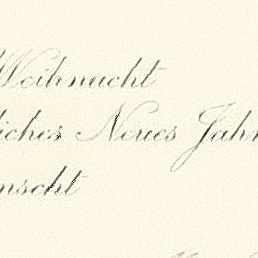 Weihnacht
liches Neues Jahr
nscht